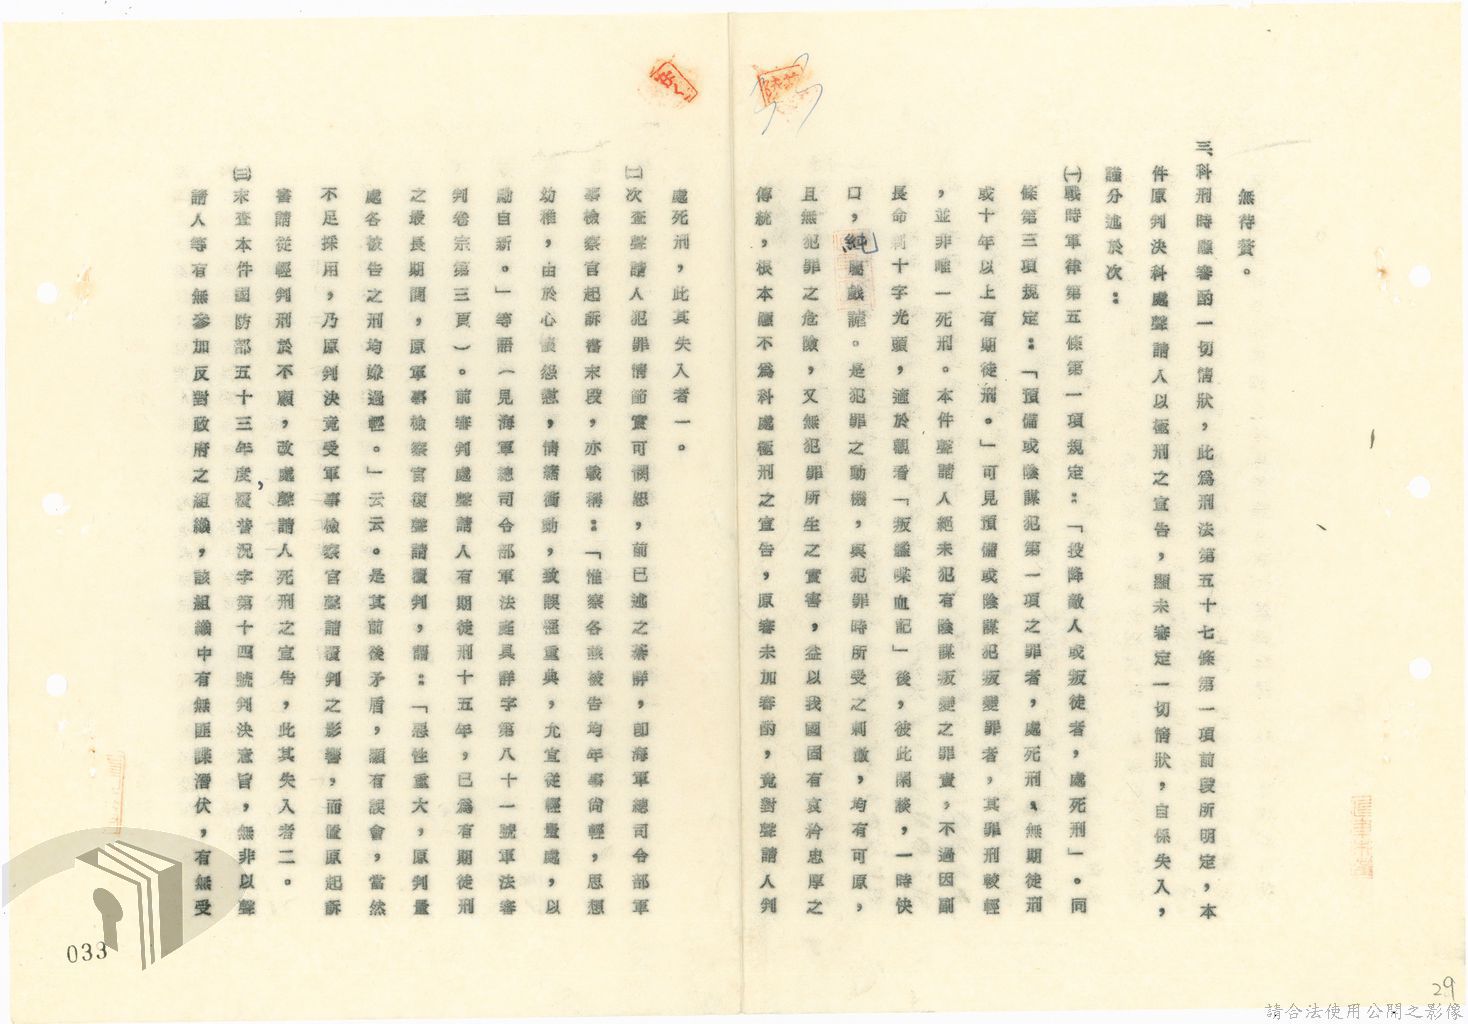 無待贅。
三、科刑時應審酌一切情狀，此為刑法第五十七條第一項前段所明定，本
件原判決科處聲請人以極刑之宣告，顯未審定一切情狀，自係失入，
謹分述於次：
㈠戰時軍律第五條第一項規定：「投降敵人或叛徒者，處死刑」。同
條第三項規定：「預備或陰謀犯第一項之罪者，處死刑、無期徒刑
或十年以上有期徒刑。」可見預備或陰謀犯叛變罪者，其罪刑較輕
，並非唯一死刑。本件聲請人經未犯有陰謀叛變之罪責，不過因副
長命剃十字光頭，適於觀看「叛艦喋血記」後，彼此閑談，一時快
口，純屬戲謔。是犯罪之動機，與犯罪時所受之刺激，均有可原，
且無犯罪之危險，又無犯罪所生之實害，益以我國固有哀矜忠厚之
傳統，根本應不為科處極刑之宣告，原審未加審酌，竟對聲請人判
處死刑，此其失入者一。
㈡次查聲請人犯罪情節實可憫恕，前已述之綦詳，即海軍總司令部軍
事檢察官起訴書末段，亦載稱：「惟察各該被告均年事尚輕，思想
幼稚，由於心懷怨懟，情緒衝動，致誤罹重典，允宜從輕量處，以
勵自新。」等語（見海軍總司令部軍法庭具詳字第八十一號軍法審
判卷宗第三頁）。前審判處聲請人有期徒刑十五年，已為有期徒刑
之最長期間，原軍事檢察官復聲請覆判，謂：「惡性重大，原判量
處各被告之刑均嫌過輕。」云云。是其前後矛盾，顯有誤會，當然
不足採用，乃原判決竟受軍事檢察官聲請覆判之影響，而置原起訴
審請從輕判刑於不顧，改處聲請人死刑之宣告，此其失入者二。
㈢末查本件國防部五十三年度覆普況字第十四號判決意旨，無非以聲
請人等有無參加反對政府之組織，該組織中有無匪諜潛伏，有無受
033
29
請合法使用公開之影像